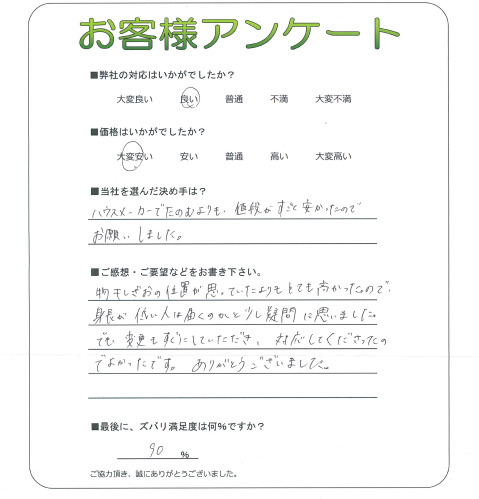 お客様アンケート
■弊社の対応はいかがでしたか?
大変良い 良い 普通 不満 大変不満
■価格はいかがでしたか?
大変安い 安い 普通 高い 大変高い
■当社を選んだ決め手は?
ハウスメーカーでたのむよりも、値段がすごく安かったので
お願いしました。
■ご感想・ご要望などをお書き下さい。
物干しざおの位置が思っていたよりもとても高かったので、
身長が低い人は届くのかと少し疑問に思いました。
でも変更もすぐにしていただき、対応してくださったの
でよかったです。ありがとうございました。
■最後に、ズバリ満足度は何%ですか?
90 %
ご協力頂き、誠にありがとうございました。